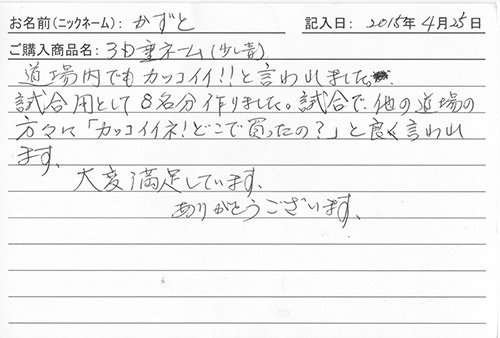 お名前(ニックネーム): かずと 記入日: 2015年4月25日
ご購入商品名: 3D重ネーム(少し昔)
道場内でもカッコイイ!!と言われました。
試合用として8名分作りました。試合で、他の道場の
方々に「カッコイイネ!どこで買ったの?」と良く言われ
ます。
大変満足しています。
ありがとうございます。